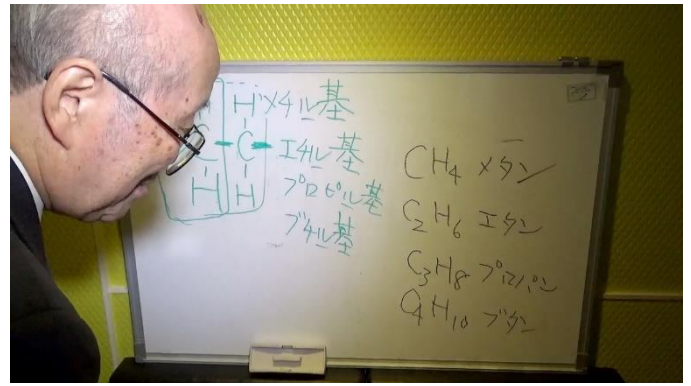 H メチル基
C - C - エチル基
H H プロピル基
ブチル基
CH4 メタン
C2H6 エタン
C3H8 プロパン
C4H10 ブタン